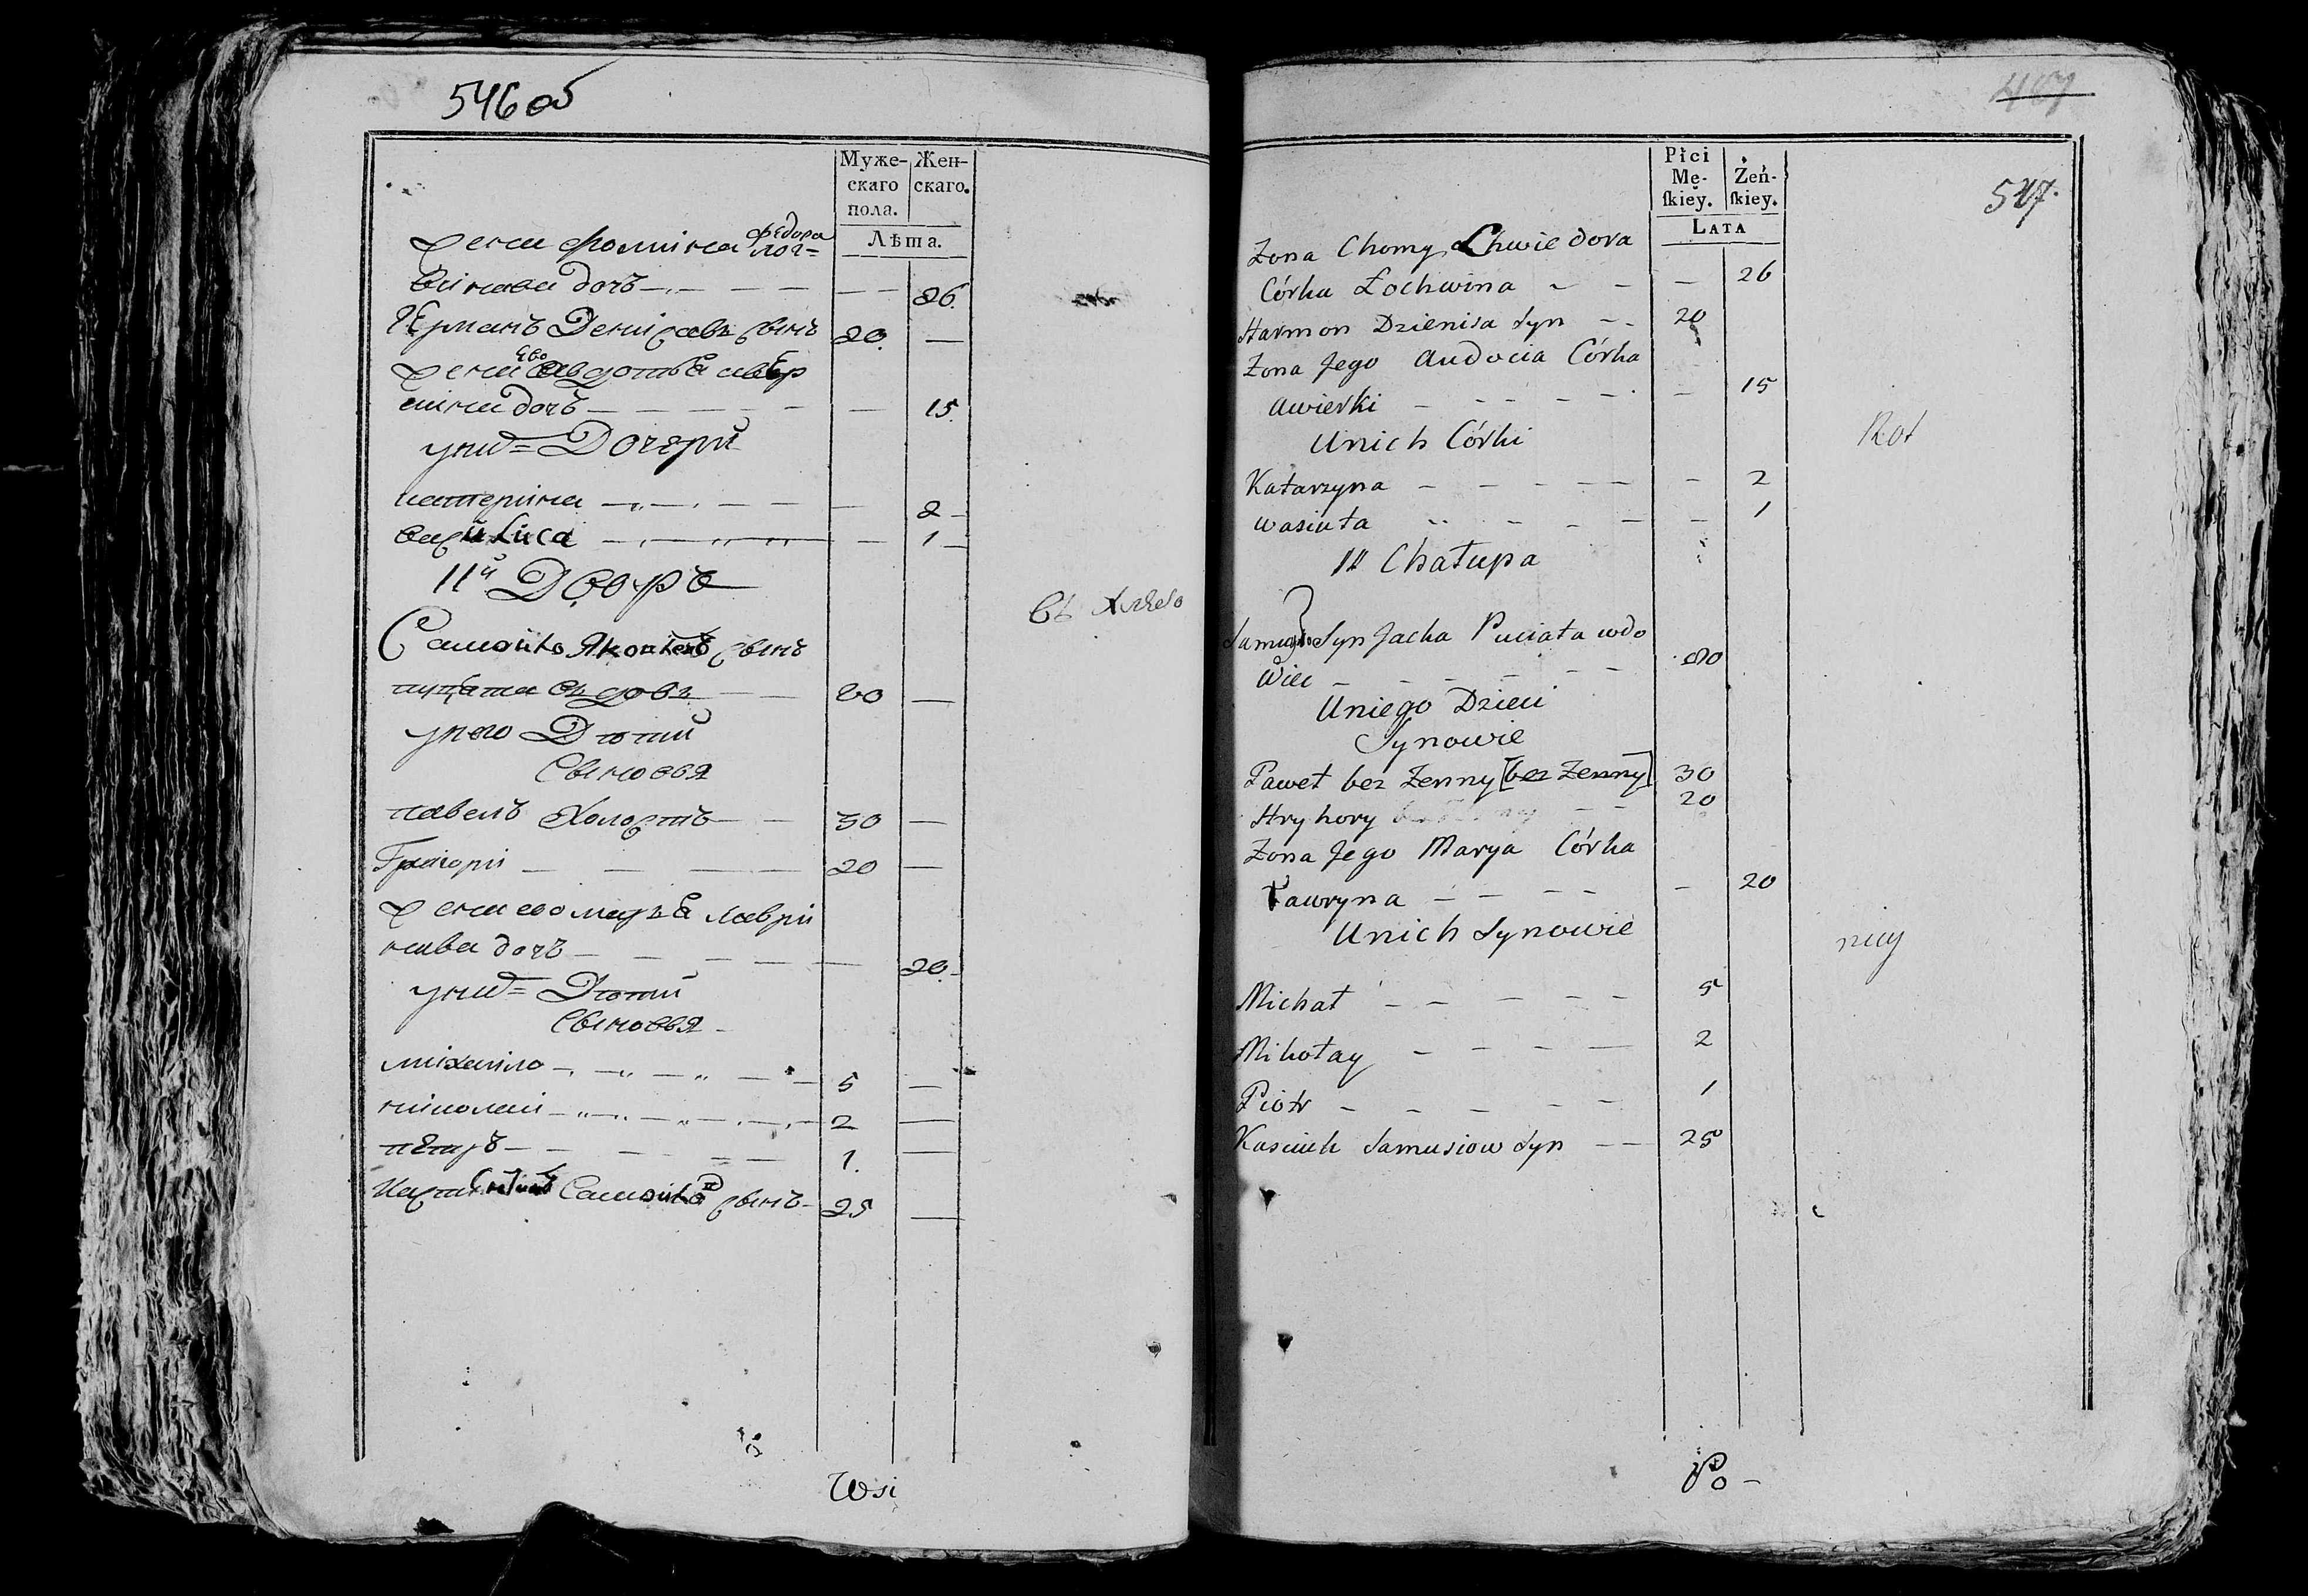 546 об
Муже-
скаго
пола.
Жен-
скаго.
Лѣта.
жена Фомина Федора лог=
винова дочь 26.
Германъ Денисавъ сынъ 20.
жена ево авдотья авер
кина дочь 15.
у них= Дочери
катерина 2
Василиса 1
11й Двор
въ Хлево
Самойло сынъ
пуцята вдовъ 80
у него Дѣти
Сыновья
павелъ Холостъ 30
Григори 20
жена его марья лаври
нава дочь 20.
у них= Дѣти
Сыновья
михайло 5
николай 2
петръ 1.
Самойла сынъ 25
Wsi
407
547.
Płci
Mę-
skiey.
Żeń-
skiey.
LATA
Zona Chomy Chwiedora
Córka Łochwina 26
Harmon Dzienisa Syn 20
Zona Jego Audocia Córka
Awierki 15
Unich Córki
Rot
Katarzyna 2
Wasiuta 1
11 Chałupa
Syn Jacka Puciata wdo
wiec 80
Uniego Dzieci
Synowie
Paweł bez Zenny [bez Zenny] 30
Hryhory 20
Zona Jego Marya Córka
Ławryna 20
Unich Synowie
nicy
Michał 5
Mikołay 2
Piotr 1
Kasciuk Samusiow Syn 25
Po -